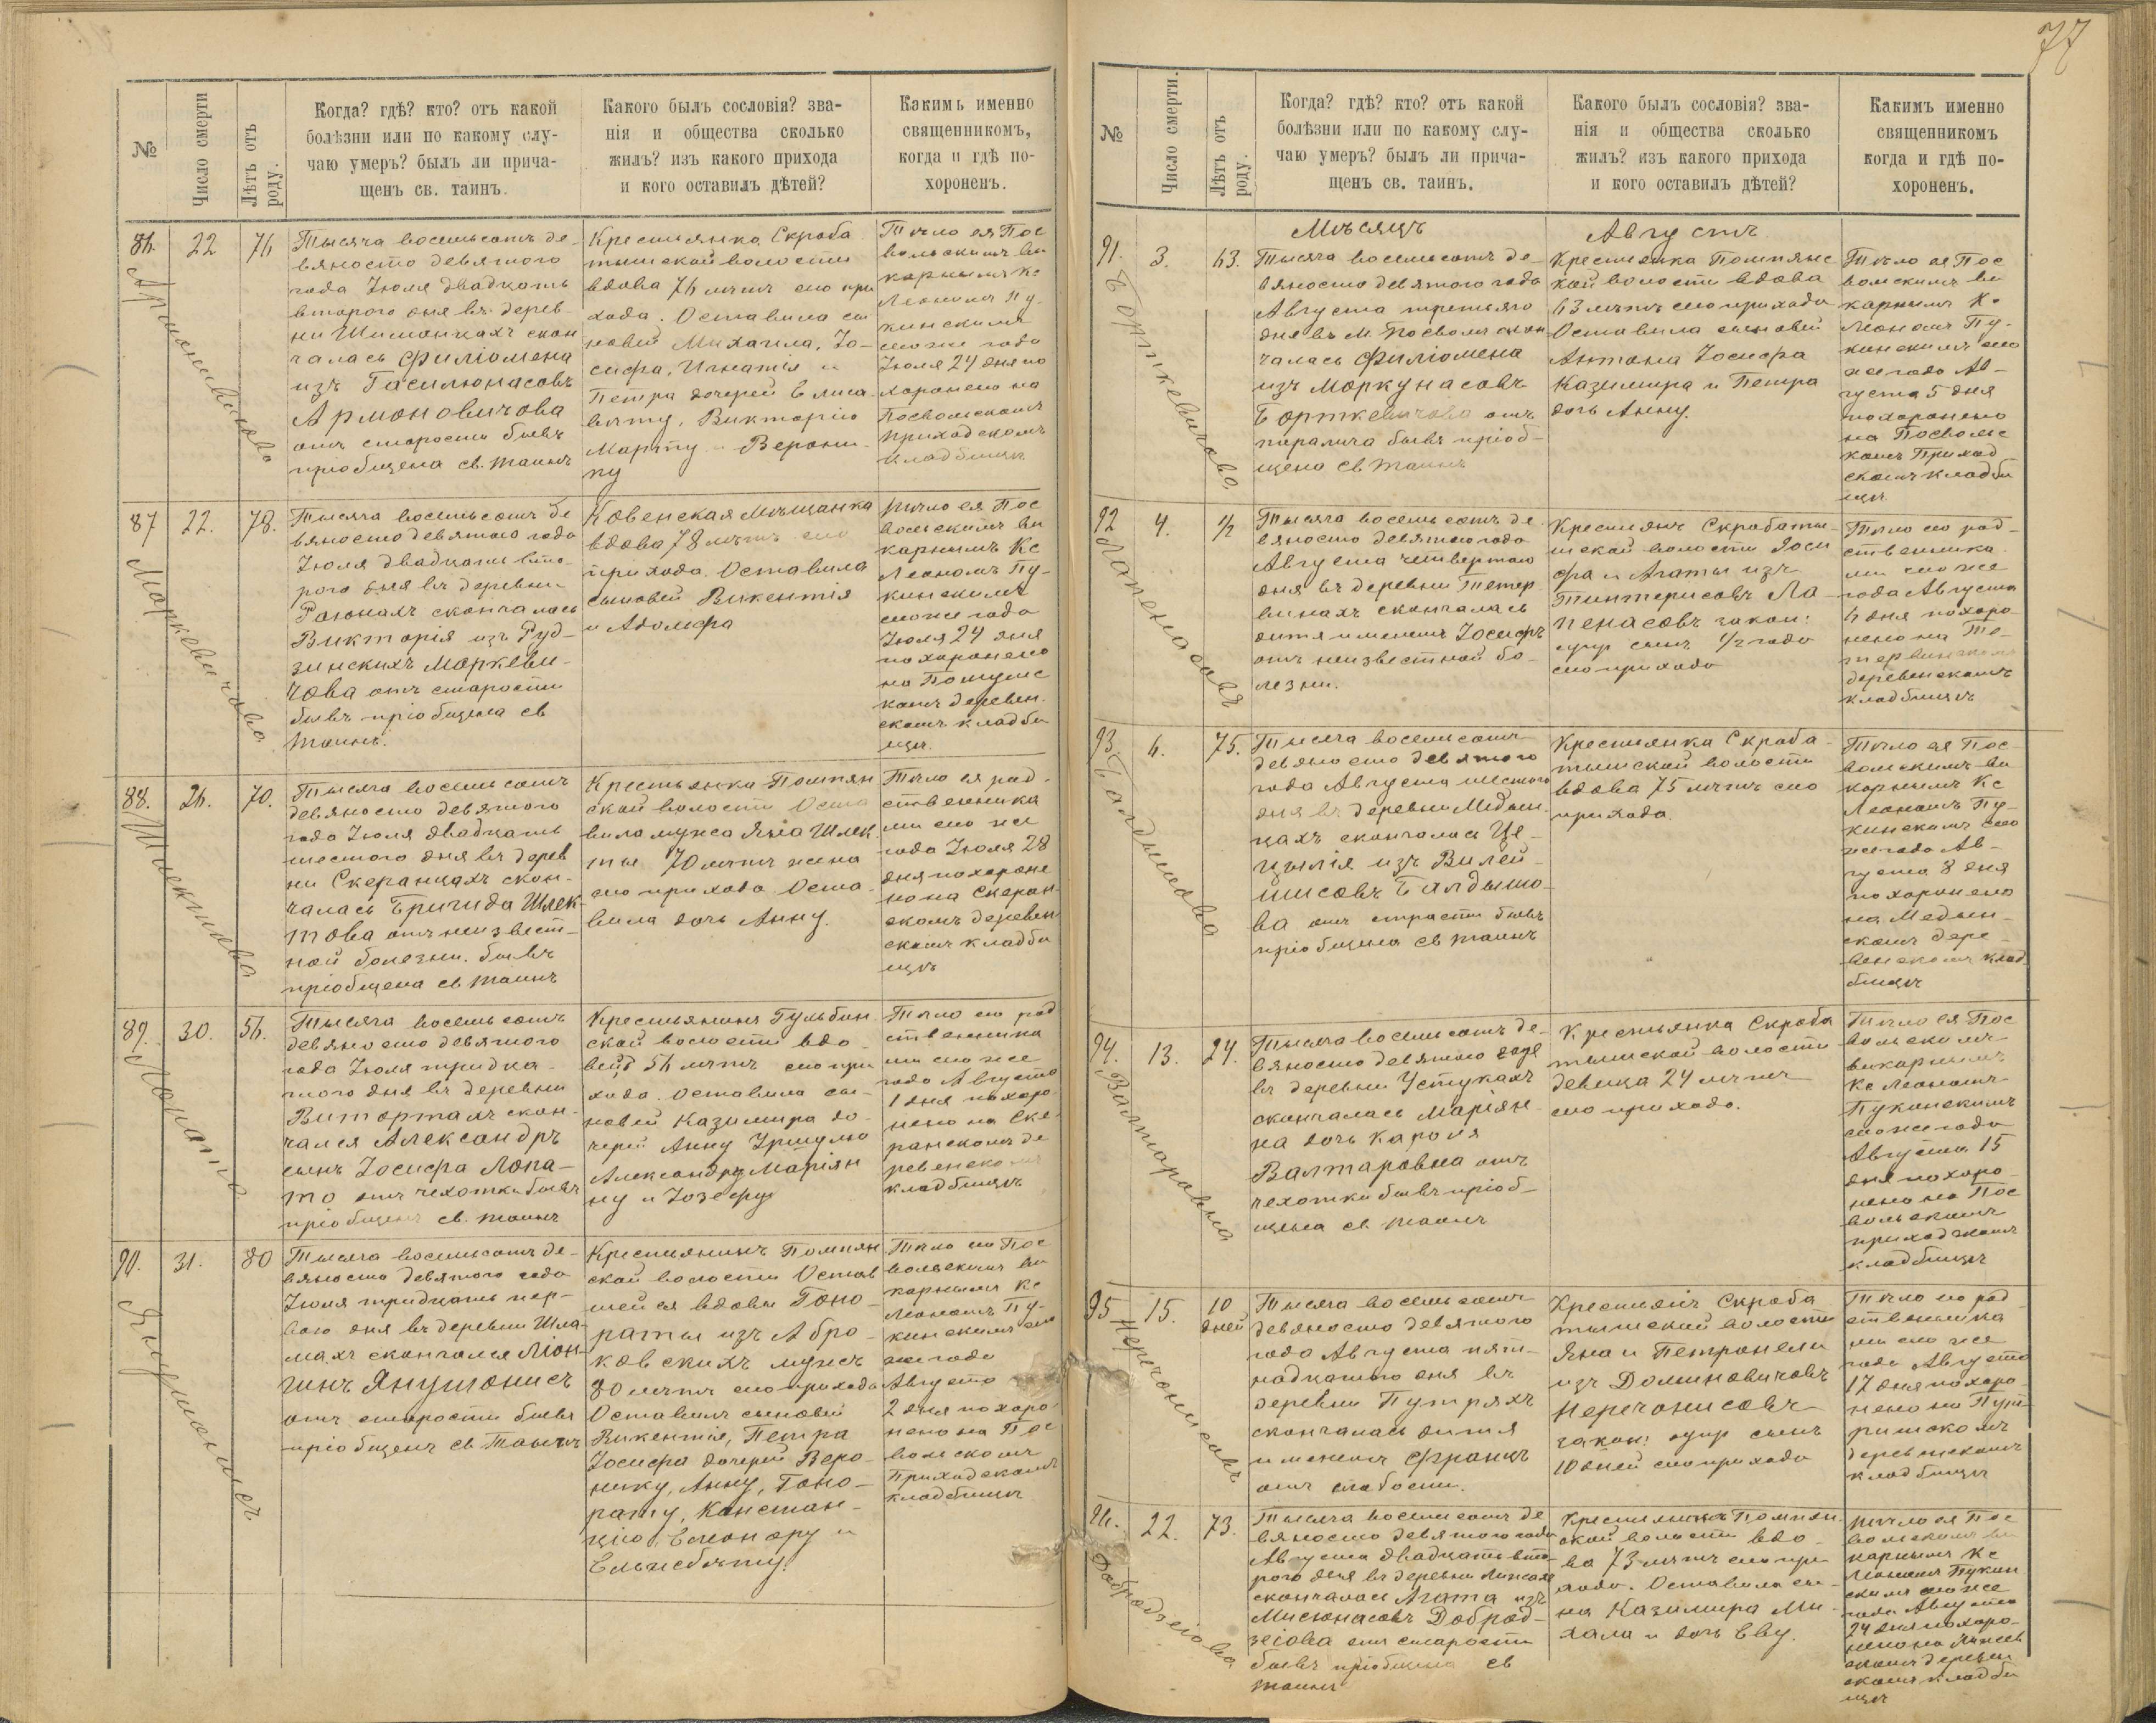 77
№
Число смерти
Лѣтъ отъ роду.
Когда? гдѣ? кто? отъ какой
болѣзни или по какому слу-
чаю умеръ? былъ ли прича-
щенъ св. таинъ.
Какого былъ сословія? зва-
нія и общества сколько
жилъ? изъ какого прихода
и кого оставилъ дѣтей?
Какимъ именно
священникомъ,
когда и гдѣ по-
хороненъ.
86.
22
76
Тысяча восемьсотъ де-
вяносто девятого
года Іюля двадцать
второго дня въ дерев-
ни Шимонцахъ скон
чалась Филіомена
изъ Гасилюнасовъ
Армоновичова
отъ старости бывъ
пріобщена св. таинъ
Крестьянка Скроба
тышской волости
вдова 76 лѣтъ сего при
хода. Оставила сы
новей Михаила, Іо-
сифа, Игнатія и
Петра дочерей Елиса
вяту, Викторію
Марту и Верони-
ку
Тѣло ея Пос
вольскимъ ви
карнымъ Кс
Леономъ Пу-
кинскимъ
сего же года
Іюля 24 дня по
хоронено на
Посвольскомъ
приходскомъ
кладбищѣ
87
22.
78.
Маркевичова
Тысяча восемьсотъ де
вяносто девятого года
Іюля двадцать вто-
рого дня въ деревни
Раюнахъ скончалась
Викторія изъ Руд-
зинскихъ Маркеви-
чова отъ старости
бывъ пріобщена св
таинъ.
Ковенская Мѣщанка
вдова 78 лѣтъ сего
прихода. Оставила
сыновей Викентія
и Адольфа
Тѣло ея Пос
вольскимъ ви
карнымъ Кс
Леономъ Пу-
кинскимъ
сего же года
Іюля 24 дня
похоронено
на
комъ деревен-
скомъ кладби
щѣ.
88.
26.
70.
Шлектова
Тысяча восемьсотъ
девяносто девятого
года Іюля двадцать
шестого дня въ дерев
ни Скеранцахъ скон-
чалась Бригида Шлек-
това отъ неизвест-
ной болезни. бывъ
пріобщена св таинъ
Крестьянка Помпян
ской волости Оста
вила мужа Яна Шлек
ты 70 лѣтъ жена
сего прихода Оста-
вила дочь Анну.
Тѣло ея род-
ственника
ми сего же
года Іюля 28
дня похороне
но на Скеран-
скомъ деревен
скомъ кладби
щѣ
89.
30.
56.
Лопато
Тысяча восемьсотъ
девяносто девятого
года Іюля тридца-
того дня въ деревни
Виторталъ скон-
чался Александръ
сынъ Іосифа Лопа-
то отъ чехотки бывъ
пріобщенъ св. таинъ
Крестьянинъ Гульбин
ской волости вдо-
вецъ 56 лѣтъ сего при
хода. Оставилъ сы-
новей Казимира до-
черей Анну Уршулю
Александру Маріян
ну и Іозефу
Тѣло его род
ственника
ми сего же
года Августа
1 дня похоро-
нено на Ске-
ранскомъ де
ревенскомъ
кладбищѣ
90.
31.
80
Янушонисъ
Тысяча восемьсотъ де-
вяносто девятого года
Іюля тридцать пер-
вого дня въ деревни Шла-
махъ скончался Ліон-
гинъ Янушонисъ
отъ старости бывъ
пріобщенъ св Таинъ
Крестьянинъ Помпян
ской волости Остав
шейся вдовы Гоно-
раты изъ Абро-
ковскихъ мужъ
80 лѣтъ сего прихода
Оставилъ сыновей
Викентія, Петра
Іосифа дочерей Веро-
нику, Анну, Гоно-
рату, Констан-
цію, Елеонору и
Ельжебяту.
Тѣло его Пос
вольскимъ ви
карнымъ Кс
Леономъ Пу-
кинскимъ сего
же года
Августа
2 дня похоро-
нено на Пос
вольскомъ
Приходскомъ
кладбищѣ
№
Число смерти.
Лѣтъ отъ роду.
Когда? гдѣ? кто? отъ какой
болѣзни или по какому слу-
чаю умеръ? былъ ли прича-
щенъ св. таинъ.
Какого былъ сословія? зва-
нія и общества сколько
жилъ? изъ какого прихода
и кого оставилъ дѣтей?
Какимъ именно
священникомъ
когда и гдѣ по-
хороненъ.
Мѣсяцъ Августъ
91.
3.
63.
Борткевичова
Тысяча восемьсотъ де-
вяносто девятого года
Августа третьяго
дня въ м. Посволь скон
чалась Филіомена
изъ Моркунасовъ
Борткевичова отъ
паралича бывъ пріоб-
щена св таинъ
Крестьянка Помпянс
кой волости вдова
63 лѣтъ сего прихода
Оставила сыновей
Антона Іосифа
Казимира и Петра
дочь Анну.
Тѣло ея Пос
вольскимъ ви
карнымъ Кс
Леономъ Пу-
кинскимъ сего
же года Ав-
густа 5 дня
похоронено
на Посвольс
комъ Приход
скомъ кладби
щѣ
92
4.
1/2
Лапенасовъ
Тысяча восемьсотъ де
вяносто девятого года
Августа четвертого
дня въ деревни Тетер
винахъ скончалась
дитя именемъ Іосифъ
отъ неизвестной бо-
лезни.
Крестьянъ Скробаты-
шской волости Іоси
фа и Агаты изъ
Тинтерисовъ Ла-
пенасовъ закон:
супр сынъ 1/2 года
сего прихода
Тѣло его род-
ственника-
ми сего же
года Августа
6 дня похоро-
нено на Те-
деревенскомъ
кладбищѣ
93.
6.
75.
Балдышова
Тысяча восемьсотъ
девяносто девятого
года Августа шестого
дня въ деревни Медын-
цахъ скончалась Це-
цылія изъ Вилей-
шисовъ Балдышо-
ва отъ старости бывъ
пріобщена св таинъ
Крестьянка Скроба-
тышской волости
вдова 75 лѣтъ сего
прихода.
Тѣло ея Пос-
вольскимъ ви
карнымъ Кс
Леономъ Пу-
кинскимъ сего
же года Ав-
густа 8 дня
похоронено
на Медын-
скомъ дере-
венскомъ клад
бищѣ
94.
13.
24.
Валтаровна
Тысяча восемьсотъ де-
вяносто девятого года
въ деревни Устукахъ
скончалась Маріян-
на дочь Кароля
Валтаровна отъ
чехотки бывъ пріоб-
щена св таинъ
Крестьянка Скроба
тышской волости
девица 24 лѣтъ
сего прихода.
Тѣло ея Пос
вольскимъ
викарнымъ
Кс Леономъ
Пукинскимъ
сего же года
Августа 15
дня похоро-
нено на Пос
вольскомъ
приходскомъ
кладбищѣ
95
15.
10 дней
Неречонисовъ
Тысяча восемьсотъ
девяносто девятого
года Августа пят-
надцатого дня въ
деревни Путряхъ
скончалась дитя
именемъ Францъ
отъ слабости.
Крестьянъ Скроба
тышской волости
Яна и Петронели
изъ Доминовичовъ
Неречонисовъ
закон: супр сынъ
10 дней сего прихода
Тѣло его род
ственника
ми сего же
года Августа
17 дня похоро-
нено на Пут-
ришскомъ
деревенскомъ
кладбищѣ
96.
22.
73.
Добрадзеіова
Тысяча восемьсотъ де
вяносто девятого года
Августа двадцать вто-
рого дня въ деревни
скончалась Агата изъ
Мисюнасовъ Доброд-
зеіова отъ старости
бывъ пріобщена св
таинъ
Крестьянка Помпян
ской волости вдо-
ва 73 лѣтъ сего при
хода. Оставила сы-
на Казимира Ми-
хала и дочь Еву.
Тѣло ея Пос
вольскимъ ви
карнымъ Кс
Леономъ Пукин
скимъ сего же
года Августа
24 дня похоро-
нено на
скомъ деревен
скомъ кладби
щѣ